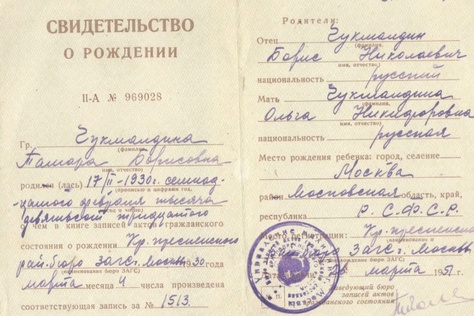 СВИДЕТЕЛЬСТВО
О РОЖДЕНИИ
II-А № 969028
Гр. Чукмандина
(фамилия)
Тамара Борисовна
(имя, отчество)
родился (лась) 17/II-1930г. семнад-
цатого февраля тысяча
девятьсот тридцатого
о чем в книге записей актов гражданского
состояния о рождении Кр. пресненского
рай. бюро ЗАГС г. Москвы 1930
(наименование бюро ЗАГС)
марта месяца 4 числа произведена
соответствующая запись за № 1513
Родители:
Отец Чукмандин
(фамилия,
Борис Николаевич
имя, отчество)
национальность русский
Мать Чукмандина
(фамилия,
Ольга Никифоровна
имя, отчество)
национальность русская
Место рождения ребенка: город, селение
Москва
Московская область, край,
республика Р.С.Ф.С.Р.
регистрации: Кр-пресненское
бюро ЗАГС г. Москвы
марта 1951 г.
Заведующий бюро
записей актов
гражданского состояния